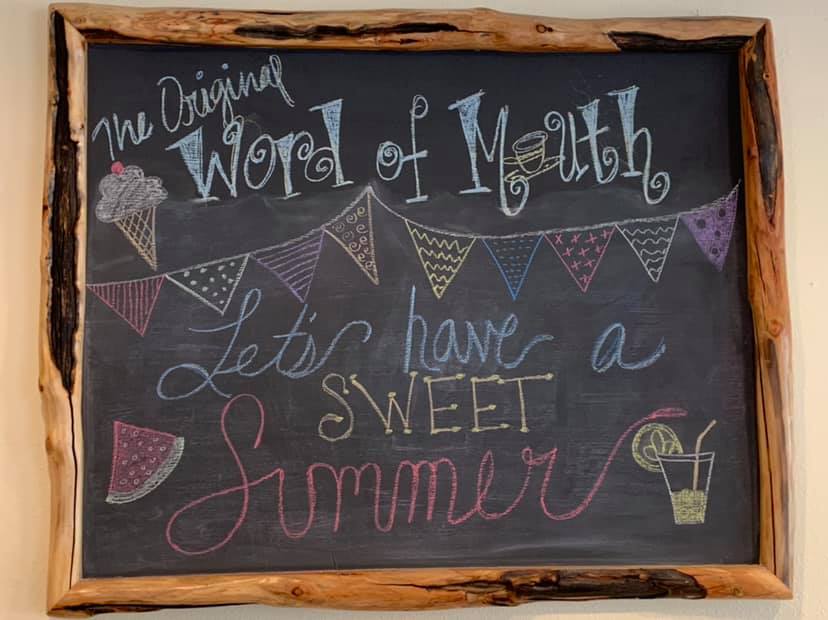 The Original
Word of Mouth
Let's have a
SWEET
Summer